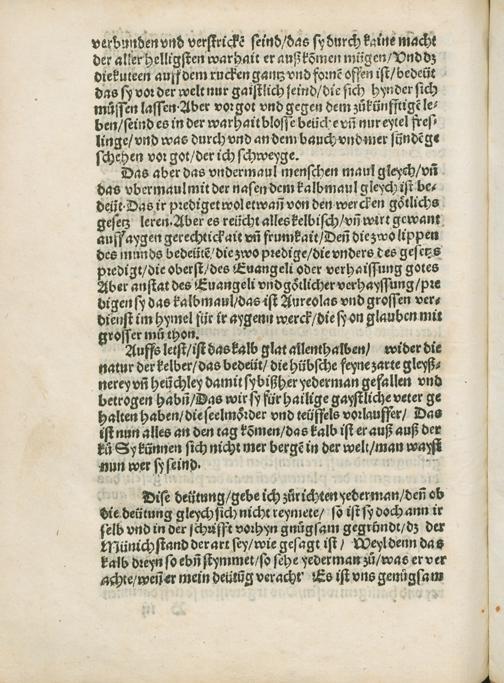 verbunden vnd verstrickẽ seind/das sy durch kaine macht
der aller helligsten warhait er außkõmen mügen/Vnd dz
die kuteen auff dem rucken gantz vnd fornẽ offen ist/bedeüt
das sy vor der welt nur gaistlich seind/die sich hynder sich
müssen lassen. Aber vor got vnd gegen dem zůkünfftigẽ le-
ben/seind es in der warhait blosse beüch e vñ nur eytel fres-
linge/vnd was durch vnd an dem bauch vnd mer sündẽ ge
schehen vor got/der ich schweyge.
Das aber das vndermaul menschen maul gleych/vñ
das vbermaul mit der nasen dem kalbmaul gleych ist be-
deüt. Das ir prediget wol etwañ von den wercken götlichs
gesetz leren. Aber es reücht alles kelbisch/vñ wirt gewant
auff aygen gerechtickait vñ frumkait/Deñ die zwo lippen
des munds bedeütẽ/die zwo predige/die vnders des gesetzs
predigt/die oberst/des Euangeli oder verhaissung gotes
Aber anstat des Euangeli vnd götlicher verhayssung/pre
digen sy das kalbmaul/das ist Aureolas vnd grossen ver-
dienst im hymel für ir aygenn werck/die sy on glauben mit
grosser mů thon.
Auffs letst/ist das kalb glat allenthalben/ wider die
natur der kelber/das bedeüt/die hübsche feyne zarte gleyß-
nerey vñ heüchley damit sy bißher yederman gefallen vnd
betrogen habñ/Das wir sy für hailige gaystliche veter ge
halten haben/die seelmörder vnd teüffels vorlauffer/ Das
ist nun alles an den tag kõmen/das kalb ist er auß auß der
ků Sy künnen sich nicht mer bergẽ in der welt/man wayst
nun wer sy seind.
Dise deütung/gebe ich zů richten yederman/deñ ob
die deütung gleych sich nicht reymete/ so ist sy doch ann ir
selb vnd in der schrifft vorhyn gnůgsam gegründt/dz der
Münichstand der art sey/wie gesagt ist/ Weyl denn das
kalb dreyn so ebñ stymmet/so sehe yederman zů/was er ver
achte/weñ er mein deütũg veracht Es ist vns genůgsam